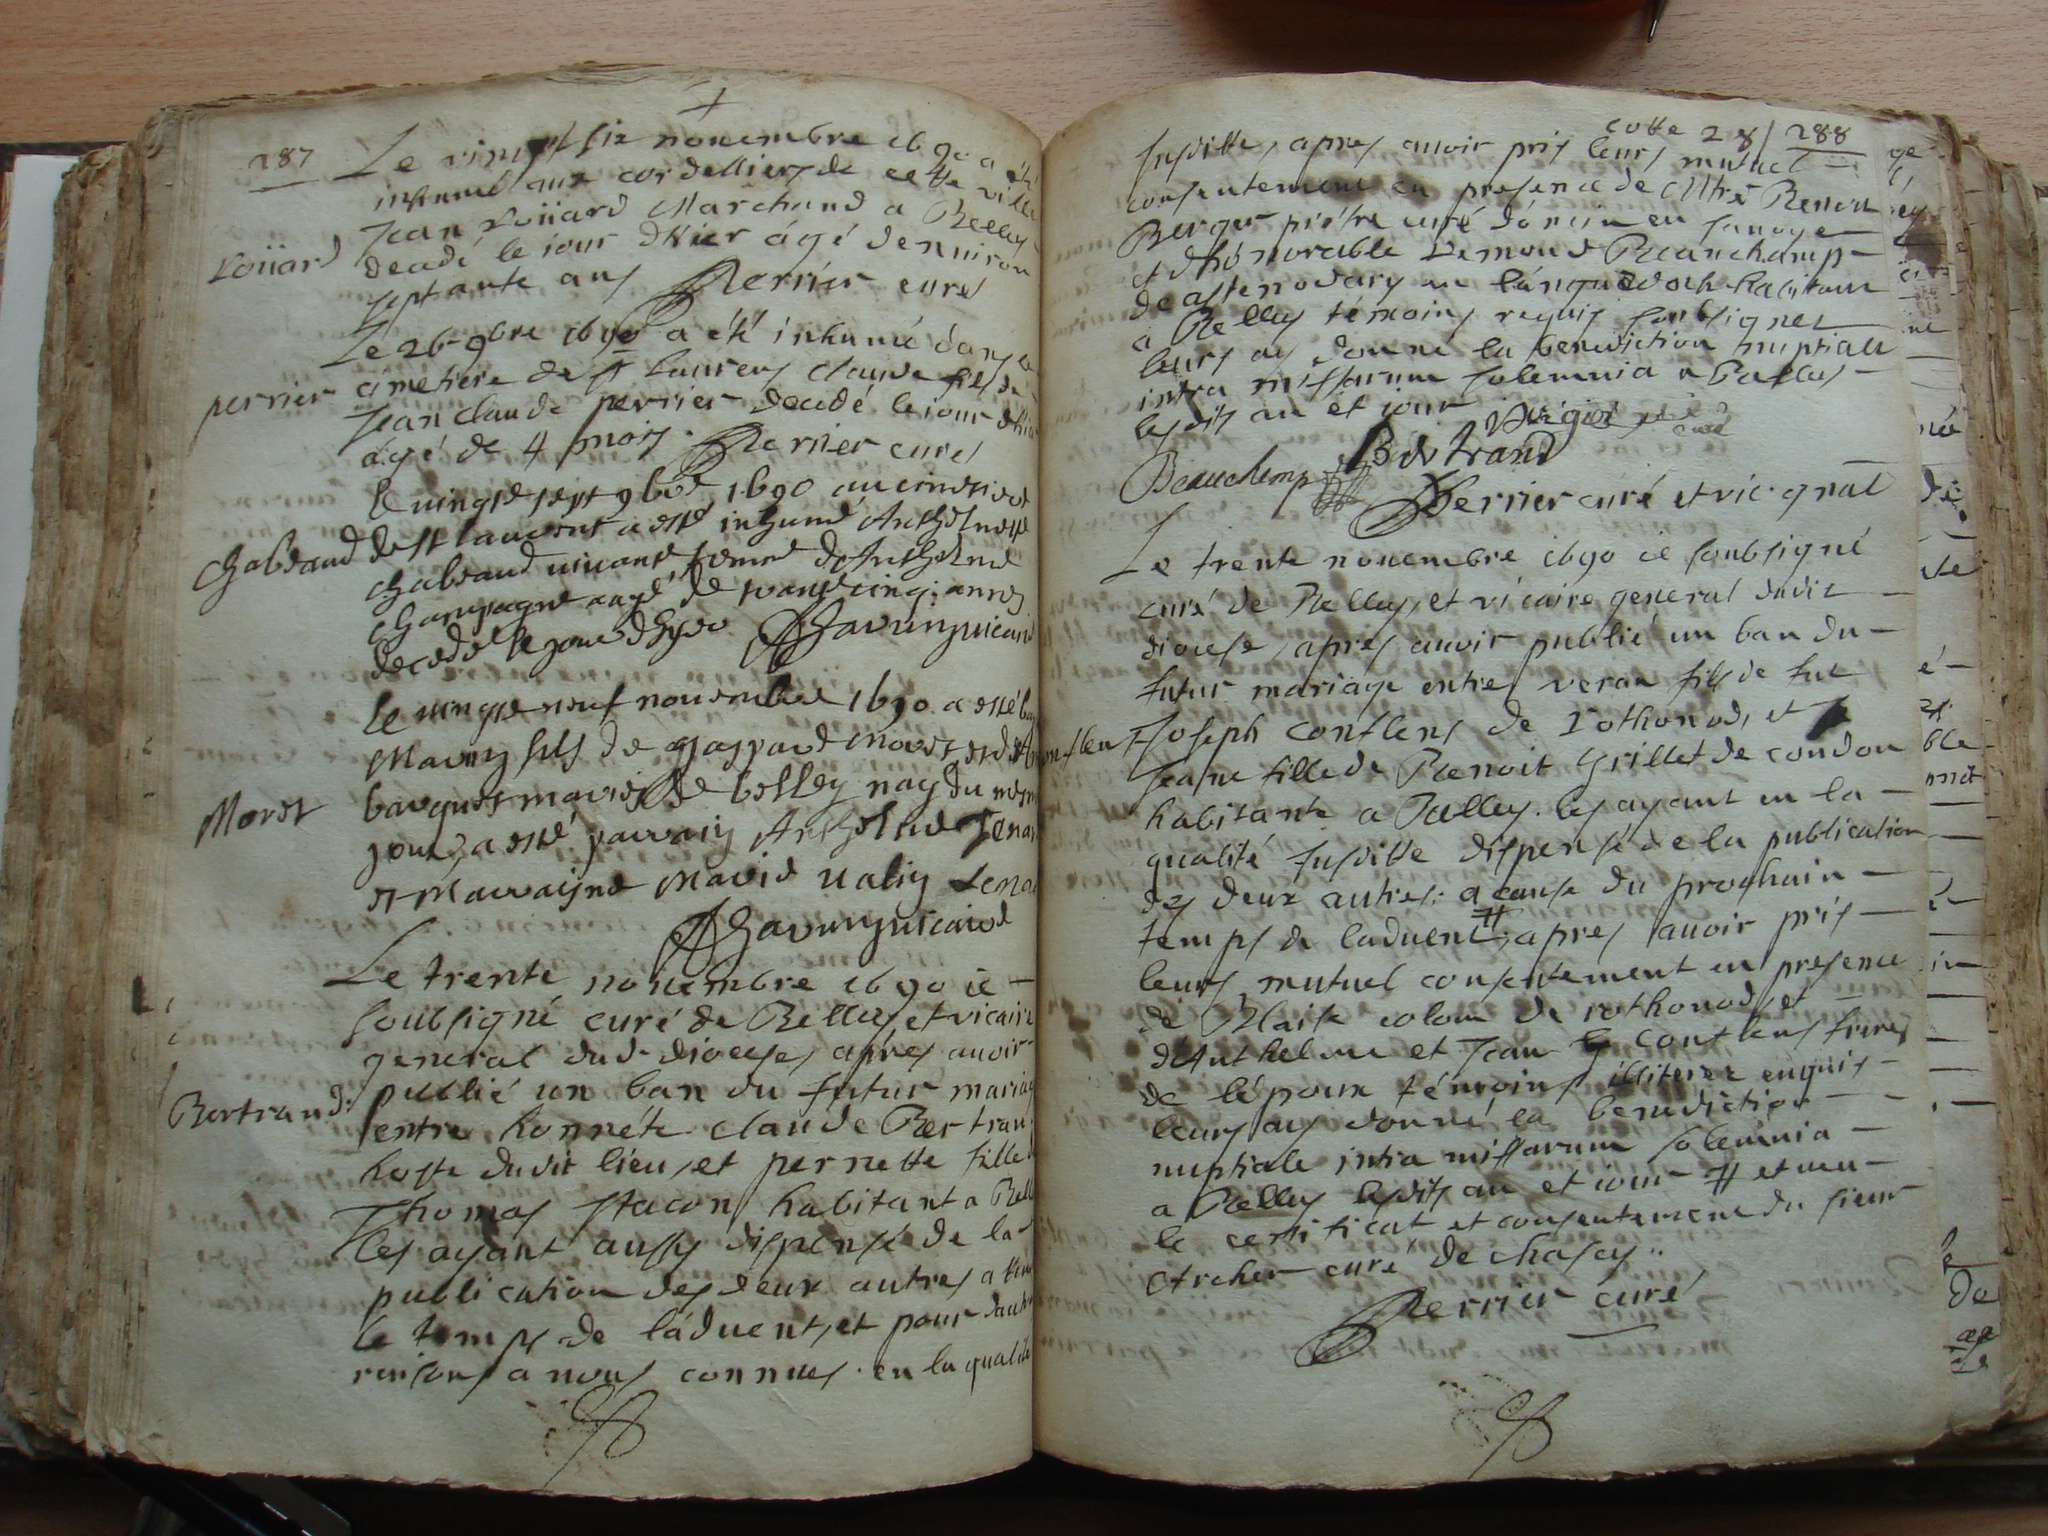 287
Le vingt six novembre 1690 a été
inhumé aux cordelliers de cette ville
Jean Roüard Marchand a Belley
Roüard
decedé le iour d'hier âgé d'environ
septante ans Perrier curé
Le 26 9bre 1690 a été inhumé dans le
perrier
cimetiere de St Laurens claude fils de
Jean claude perrier decedé le iour d'hier
âgé de 4 mois Perrier curé
le vingte sept 9bre 1690 au cimetiere
Chabeaud
de st laurent a esté inhumé Anthelmette
chabeaud vivante feme de Anthelme
Champagne aagé de cinq annes
decedé le jour dhyer vicaire
le vingte neuf novembre 1690 a esté
Mavry fils de gaspard Moret et de
Moret
maries de belley nay du mesme
jour, a esté parrain Anthelme
et Marrayne Marie
vicaire
Le trente novembre 1690 ie
soubsigné curé de Belley et vicaire
general dud. diocese, apres avoir
Bertrand
publié un ban du futur mariage
entre honnéte claude Bertrand
hoste dudit lieu, et pernette fille
Thomas habitant a
les ayant aussy dispensé de la
publication des deux autres a
le temps de l'advent, et pour
raisons a nous connues. en la qualité
cotte 28 288
susditte, apres avoir pris leurs mutuel
consentement en presence de Mre Benoit
Berger prêtre curé d'oncin en savoye
et d'honorable Remond Beauchamp
de en languedoch habitant
a Belley témoins requis soubsignez
leurs ay donné la benediction nuptiale
intra missarum solemnia a Belley
lesdits an et iour
Bertrand
Beauchemp
Perrier curé et vic. gnal
Le trente novembre 1690 ie soubsigné
curé de Belley, et vicaire general dudit
diocese, apres avoir publié un ban du
futur mariage entre veran fils de fut
Joseph conflens de rothonod, et
Jeane fille de Benoit Grillet de condon
habitante a Belley. les ayant en la
qualité susditte dispensé de la publication
des deux autres: a cause du prochain
temps de l'advent, # apres avoir pris
leurs mutuel consentement en presence
de Blaise colom de rothonod, et
d'Anthelme et Jean Conflens freres
de l'époux témoins illiterez enquis
leurs ay donné la benediction
nuptiale intra missarum solemnia
a Belley lesdits an et iour # et veu
le certificat et consentement du sieur
Archer curé de chasey..
Perrier curé